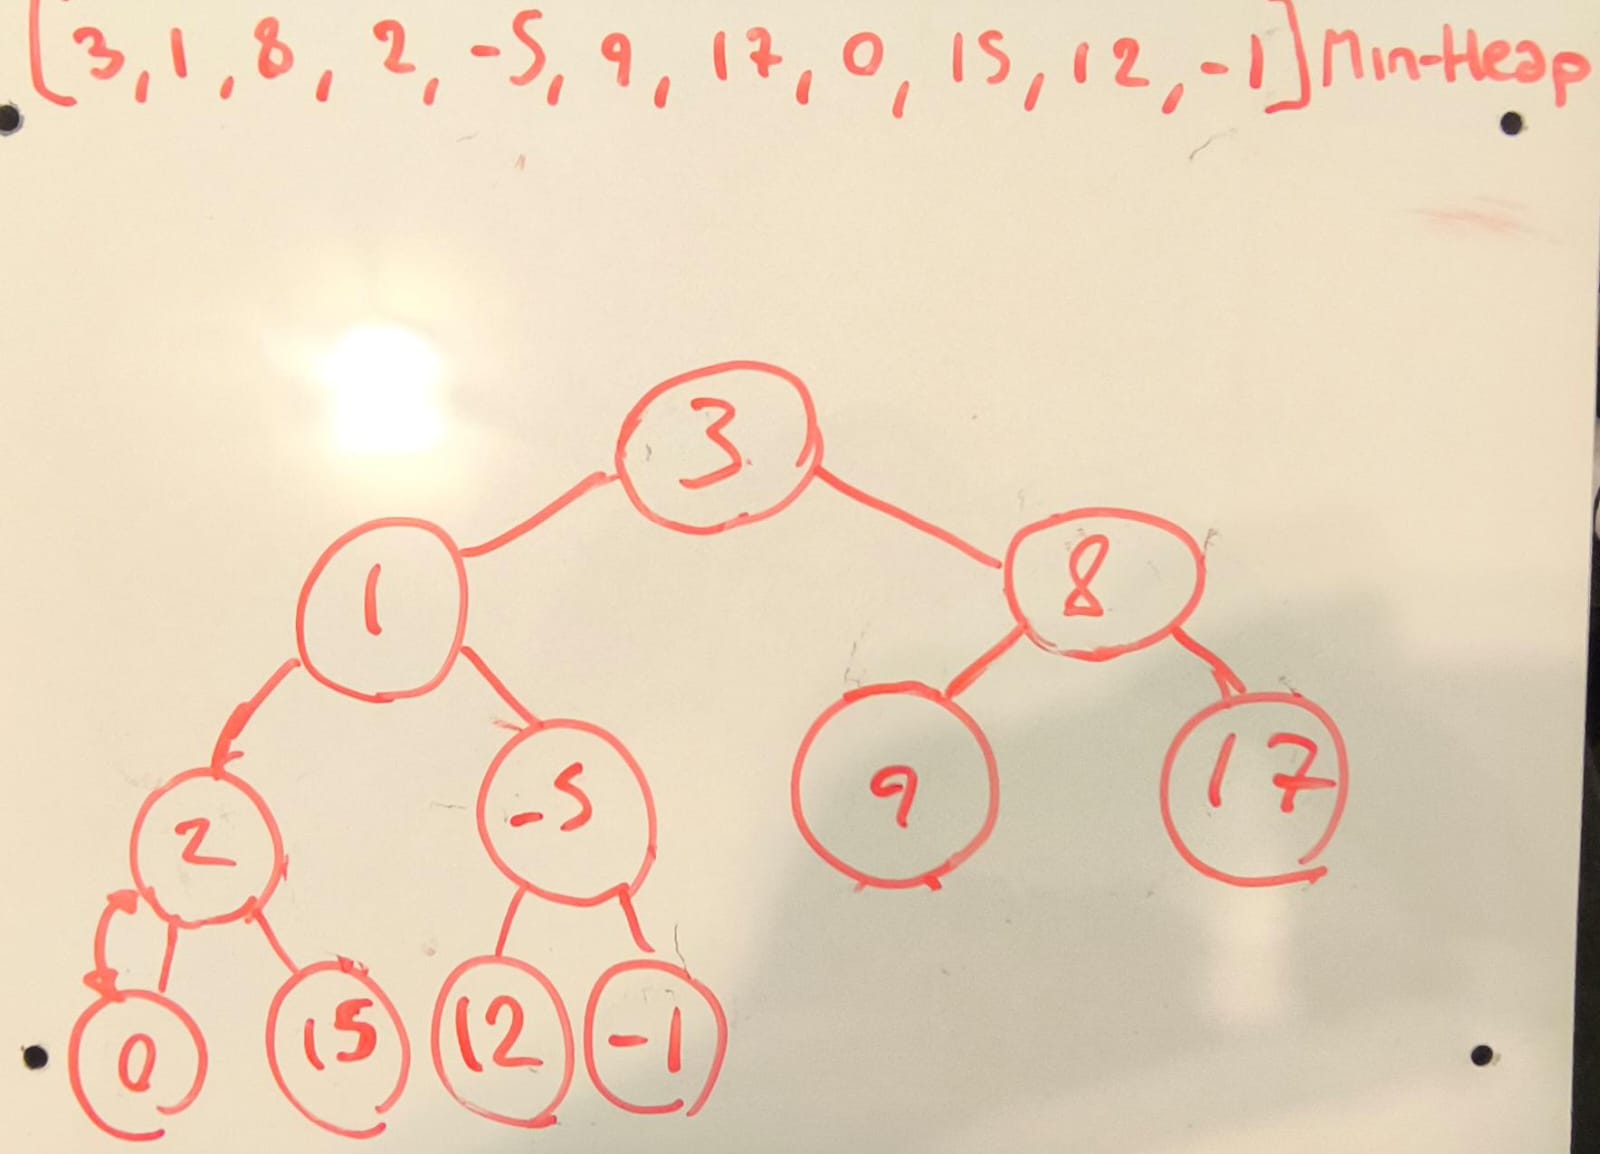 [3, 1, 8, 2, -5, 9, 17, 0, 15, 12, -1] Min-Heap
3
1 8
2 -5 9 17
0 15 12 -1